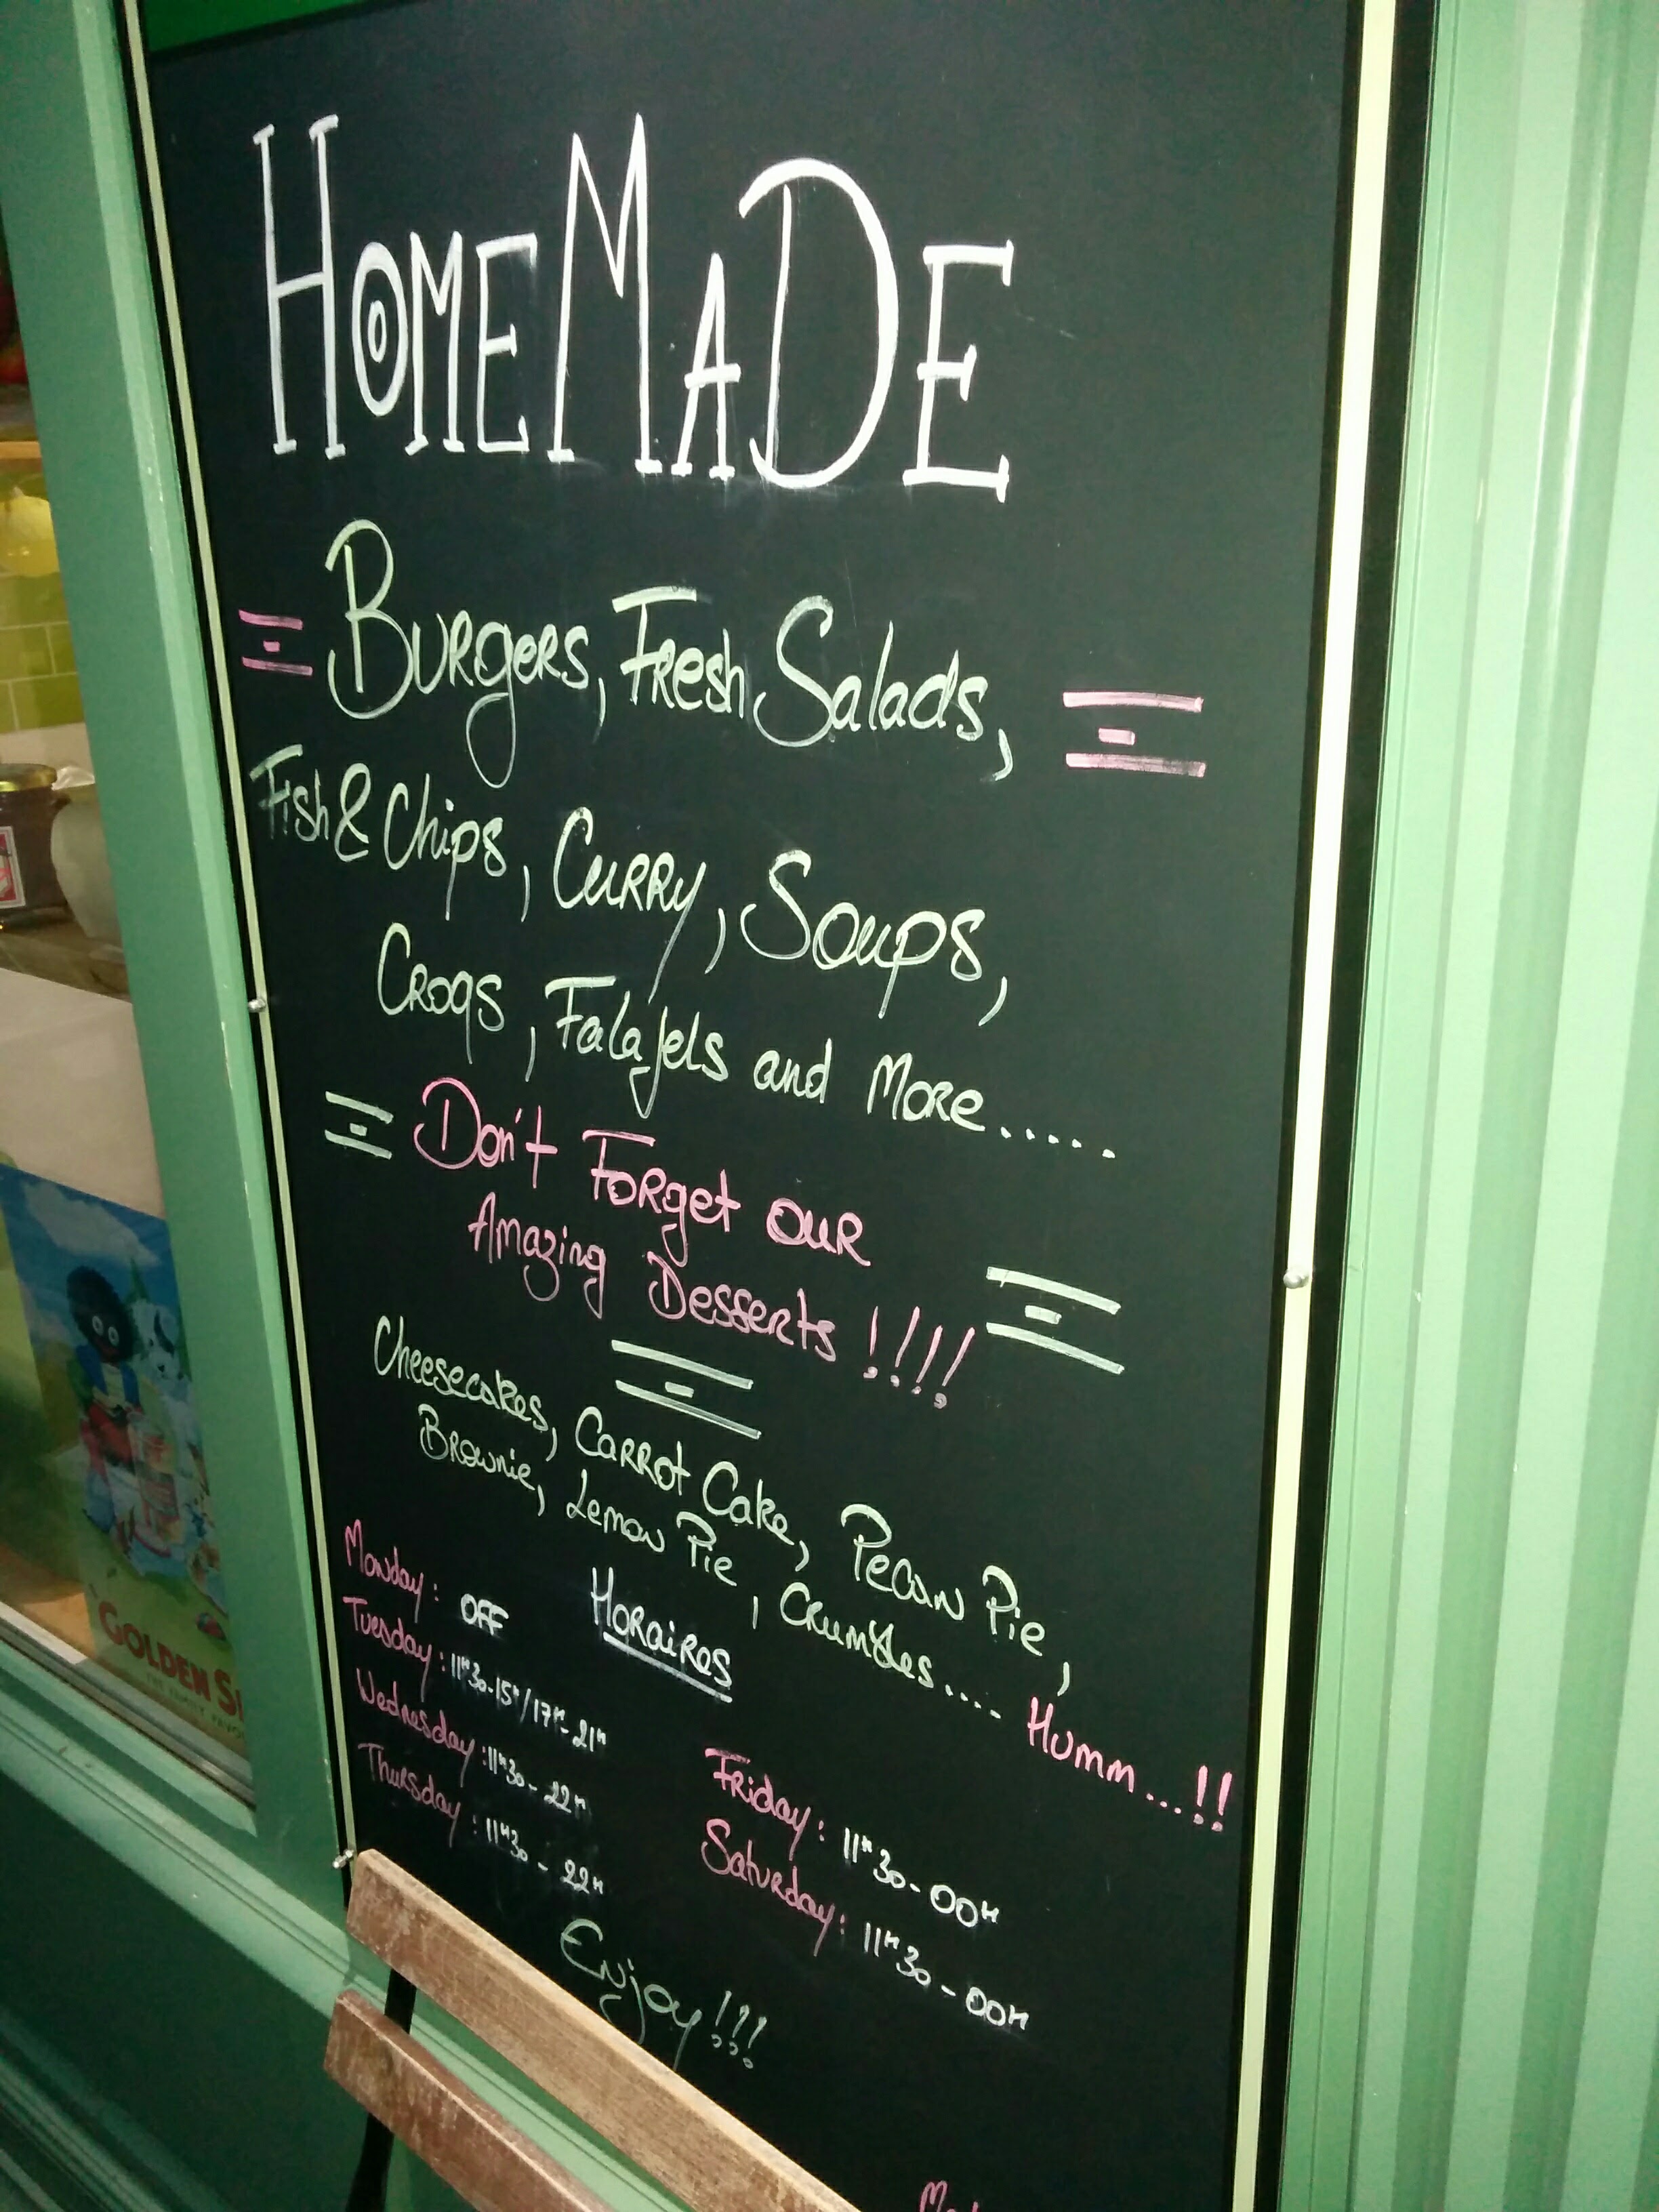 HOMEMADE
Burgers, Fresh Salads,
Fish & Chips, Curry, Soups,
Croqs, Falafels and More.....
Don't Forget our
Amazing Desserts !!!!
Cheesecakes, Carrot Cake, Pecan Pie,
Brownie, Lemon Pie, Crumbles.... Humm...!!
Horaires
Monday: OFF
Tuesday: 11H30-15H/17H-21H
Wednesday: 11H30-22H
Thursday: 11H30-22H
Friday: 11H30-00H
Saturday: 11H30-00H
Enjoy!!!
GOLDEN